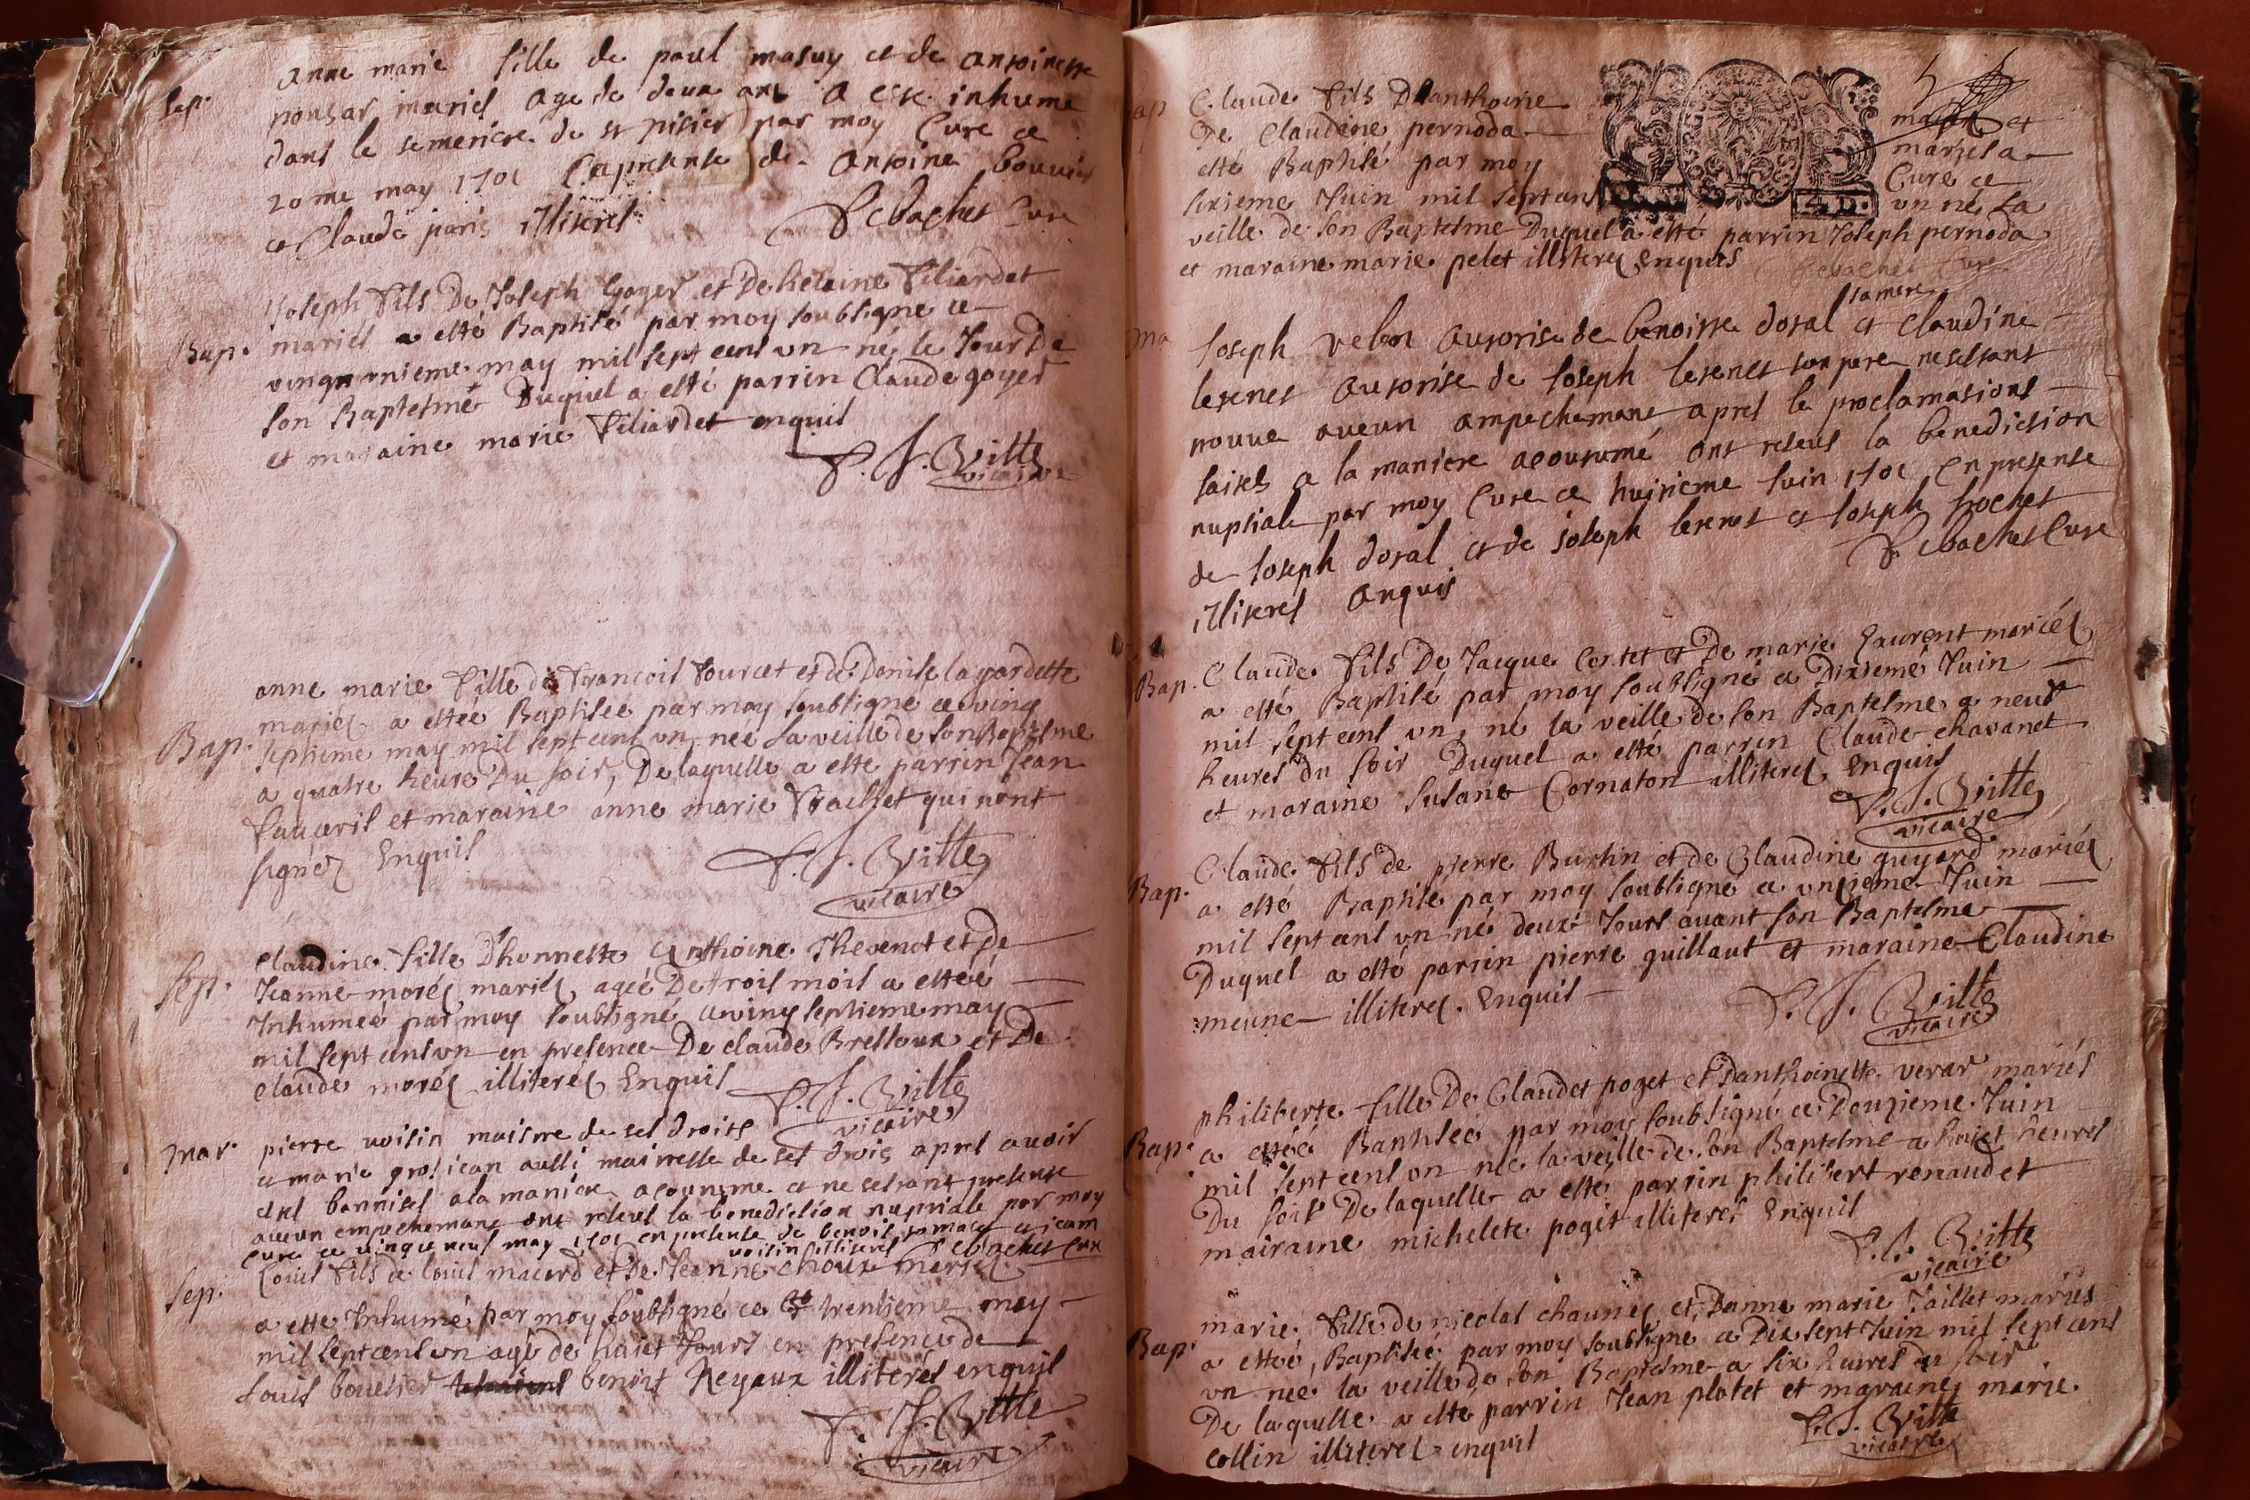 anne marie fille de paul masuy et de antoinette
Sep. ponsar mariés agé de deux ans a esté inhumé
dans le semetiere de st pisier par moy Curé ce
20me may 1701 en presense de antoine bouvier
et Claude paris illiterés
P. Cbachet Curé
Joseph fils De Joseph Goyer et De helaine Viliardet
Bap. mariés a esté Baptisé par moy soubsigné ce
vingt unieme may mil sept cens un né le Jour de
son Baptesme Duquel a esté parrin Claude goyer
et maraine marie Viliardet enquis
P. J. Britte
vicaire
anne marie fille de francois Fourcet et de Denise la gardette
mariés a estée Baptisée par moy soubsigné ce ving
Bap. septieme may mil sept cens un, née la veille de son Baptesme
a quatre heure Du soir, De laquelle a esté parrin Jean
et maraine anne marie Vrachet qui nont
signéz Enquis
P. J. Britte
vicaire
Claudine fille D'honneste Anthoine Thevenot et de
Sep. Jeanne moréz mariéz agée De trois mois a esteé
Inhumeé par moy soubsigné ce ving septieme may
mil sept cens un en presence De claude Brelloux et De
claude moréz illiteréz Enquis
P. J. Britte
vicaire
Mar. pierre voisin maistre de ses droits
et marie grosjean aussi maitresse de ses drois apres avoir
estes bannises a la maniere acoutume et ne sestant presente
aucun empechemant ont reseus la benediction nuptiale par moy
curé ce vingt neuf may 1701 en presense de benois ramace et jean
voisin illiteres P. Cbachet Curé
Sep. Louis fils de louis macard et De Jeanne choux mariez
a esté Inhumé par moy soubsigné ce trentieme may
mil sept cens un agé de huict Jours en presence de
Louis bouvier benoist Neyaux illiterés enquis
P. J. Britte
vicaire
Bap. Claude fils D'anthoine
mariés et
De Claudine pernoda
esté Baptisé par moy
Curé ce
sixieme Juin mil sept cens
un né la
veille de son Baptesme Duquel a esté parrin Joseph pernoda
et maraine marie pelet illiterez Enquis
Cbachet Curé
sa mere
Ma Joseph velon autorisé de benoitte dosal et Claudine
autorise de Joseph son pere ne sestant
trouve aucun ampechemant apres le proclamations
faites a la maniere acoutumé ont reseus la benediction
nuptiale par moy Curé ce huitieme Juin 1701 en presense
de Joseph dosal et de joseph et Joseph hochet
illiteres anquis
P. Cbachet Curé
Bap. Claude fils De Jacque Cortet et De marie Laurent mariéz
a esté Baptisé par moy soubsigné ce Dixiemé Juin
mil sept cens un, né la veille de son Baptesme a neuf
heures du soir Duquel a esté parrin Claude chavanet
et maraine Susane Cornaton illiterez Enquis
P. J. Britte
vicaire
Claude fils de pierre Burtin et de Claudine guyard mariéz
Bap. a esté Baptisé par moy soubsigné ce unzieme Juin
mil sept cens un né deux Jours avant son Baptesme
Duquel a esté parrin pierre guillaut et maraine Claudine
meune illiterez. Enquis
P. J. Britte
vicaire
philiberte fille De Claudet poget et Danthoinette verar mariés
Bap. a esteé Baptiseé par moy soubsigné ce Douzieme Juin
mil sept cens un née la veille de son Baptesme a huict heures
Du soir De laquelle a esté parrin philibert renaud et
mairaine michelete poget illiterés Enquis
P. J. Britte
vicaire
marie fille de nicolas chaunéz et Danne marie Jaillet mariés
Bap. a esteé, Baptiseé par moy soubsigné ce Dix sept Juin mil sept cens
un neé la veille de son Baptesme a six heures du soir
De laquelle a esté parrin Jean platet et maraine marie
collin illiterez enquis
P. J. Britte
vicaire